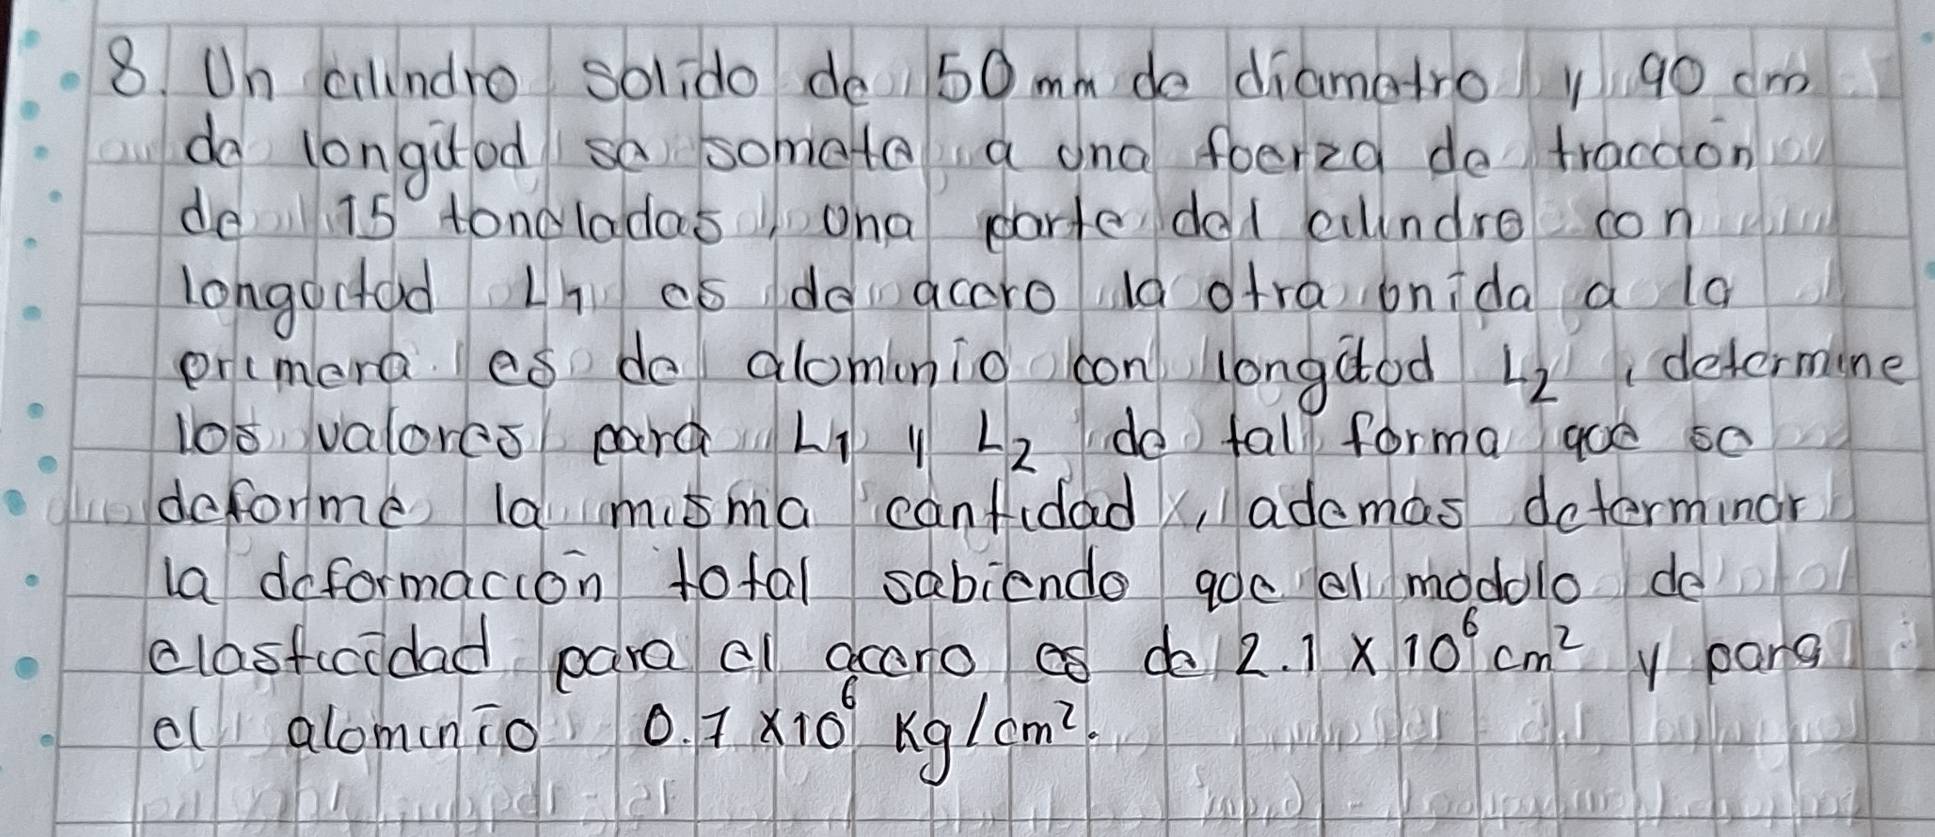 8. Un cilindro solido de 50 mm de diametro y 90 cm
de longitud se somete a una fuerza de tracción
de 15 toneladas, una parte del cilindro con
longuitud L1 es de acero la otra unida a la
primera es de aluminio con longitud L2, determine
los valores para L1 y L2 de tal forma que se
deforme la misma cantidad, ademas determinar
la deformación total sabiendo que el modulo de
elasticidad para el acero es de 2.1 x 10⁶ cm² y para
el aluminio 0.7 x10⁶ Kg/cm².